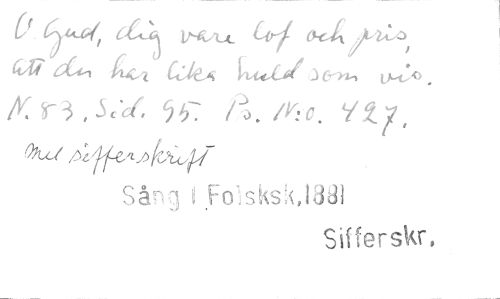 O Gud, dig vare lof och pris,
att du har lika huld som vis.
N. 83. Sid. 95. Ps. N:o. 427.
med sifferskrift
Sång i Folsksk, 1881
Sifferskr.